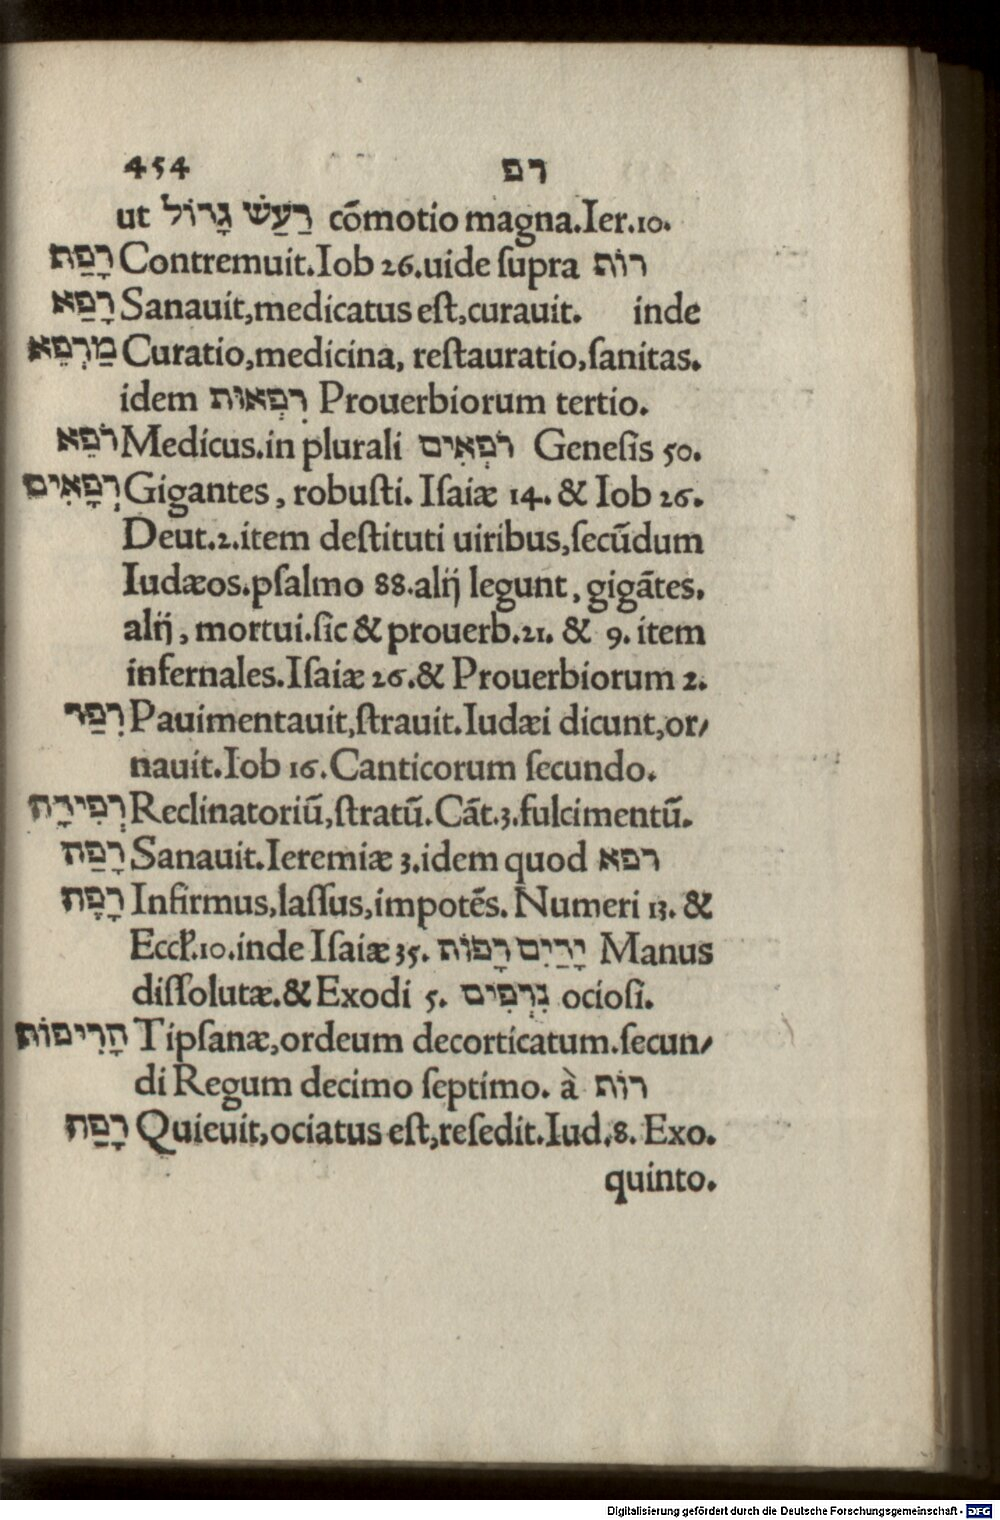 454 רפ
ut רַעַשׁ גָּדוֹל cõmotio magna.Ier.10.
רָפַת Contremuit.Iob 26.uide ſupra רות
רָפָא Sanauit,medicatus eſt,curauit. inde
מַרְפֵּא Curatio,medicina, reſtauratio,ſanitas.
idem רִפְאוּת Prouerbiorum tertio.
רֹפֵא Medicus.in plurali רֹפְאִים Geneſis 50.
רְפָאִים Gigantes, robuſti. Iſaiæ 14. & Iob 26.
Deut.2.item deſtituti uiribus,ſecũdum
Iudæos.pſalmo 88.alij legunt, gigãtes.
alij, mortui.ſic & prouerb.21. & 9. item
infernales.Iſaiæ 26.& Prouerbiorum 2.
רִפַּד Pauimentauit,ſtrauit.Iudæi dicunt,or/
nauit.Iob 16.Canticorum ſecundo.
רְפִידָה Reclinatoriũ,ſtratũ.Cãt.3.fulcimentũ.
רָפָה Sanauit.Ieremiæ 3.idem quod רפא
רָפֶה Infirmus,laſſus,impotẽs. Numeri 13. &
Eccl.10.inde Iſaiæ 35. יָדַיִם רָפוֹת Manus
diſſolutæ.& Exodi 5. נִרְפִּים ocioſi.
הָרִיפוֹת Tipſanæ,ordeum decorticatum.ſecun/
di Regum decimo ſeptimo. à רות
רָפַת Quieuit,ociatus eſt,reſedit.Iud.8. Exo.
quinto.
Digitalisierung gefördert durch die Deutsche Forschungsgemeinschaft - DFG